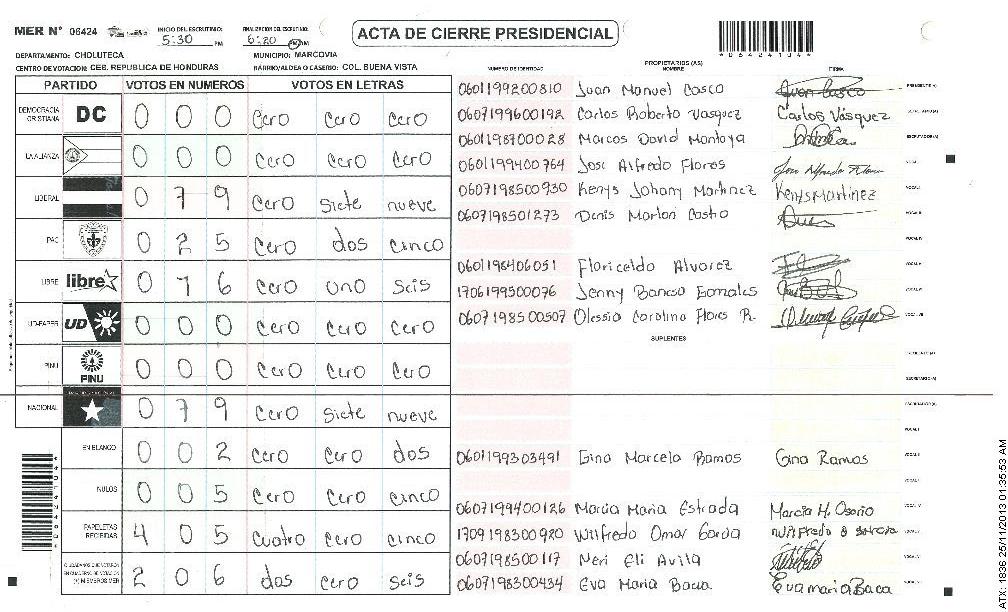 MER N° 06424 INICIO DEL ESCRUTINIO: 5:30 PM FINALIZACION DEL ESCRUTINIO: 6:20 PM
ACTA DE CIERRE PRESIDENCIAL
DEPARTAMENTO: CHOLUTECA MUNICIPIO: MARCOVIA
CENTRO DE VOTACION: CEB. REPUBLICA DE HONDURAS BARRIO/ALDEA O CASERIO: COL. BUENA VISTA
PARTIDO VOTOS EN NUMEROS VOTOS EN LETRAS
DEMOCRACIA CRISTIANA DC 0 0 0 cero cero cero
LA ALIANZA 0 0 0 cero cero cero
LIBERAL 0 7 9 cero siete nueve
PAC 0 2 5 cero dos cinco
LIBRE libre 0 1 6 cero uno seis
UD-FAPER UD 0 0 0 cero cero cero
PINU PINU 0 0 0 cero cero cero
NACIONAL 0 7 9 cero siete nueve
EN BLANCO 0 0 2 cero cero dos
NULOS 0 0 5 cero cero cinco
PAPELETAS RECIBIDAS 4 0 5 cuatro cero cinco
CIUDADANOS QUE VOTARON EN CUADERNO DE VOTACION (+) MIEMBROS MER 2 0 6 dos cero seis
PROPIETARIOS (AS)
NUMERO DE IDENTIDAD NOMBRE FIRMA
0601199200810 Juan Manuel Casco PRESIDENTE (A)
0607199600192 Carlos Roberto Vasquez Carlos Vásquez SECRETARIO (A)
0601198700028 Marcos David Montoya ESCRUTADOR (A)
0601199400764 Jose Alfredo Flores Jose Alfredo Flores VOCAL I
0607198500930 Kenys Johany Martinez Kenys Martinez VOCAL II
0607198501273 Denis Marlon Castro VOCAL III
VOCAL IV
0601198406051 Floricelda Alvarez VOCAL V
1706199500076 Jenny Banesa Gonzales VOCAL VI
0607198500507 Olessia Carolina Flores R. VOCAL VII
SUPLENTES
PRESIDENTE (A)
SECRETARIO (A)
ESCRUTADOR (A)
VOCAL I
0601199303491 Gina Marcela Ramos Gina Ramos VOCAL II
VOCAL III
0607199400126 Marcia Maria Estrada Marcia M. Osorio VOCAL IV
1709198300920 Wilfredo Omar Garcia Wilfredo O VOCAL V
0607198500117 Neri Eli Avila VOCAL VI
0607198300434 Eva Maria Baca Eva maria Baca VOCAL VII
ATX: 1836 25/11/2013 01:35:53 AM